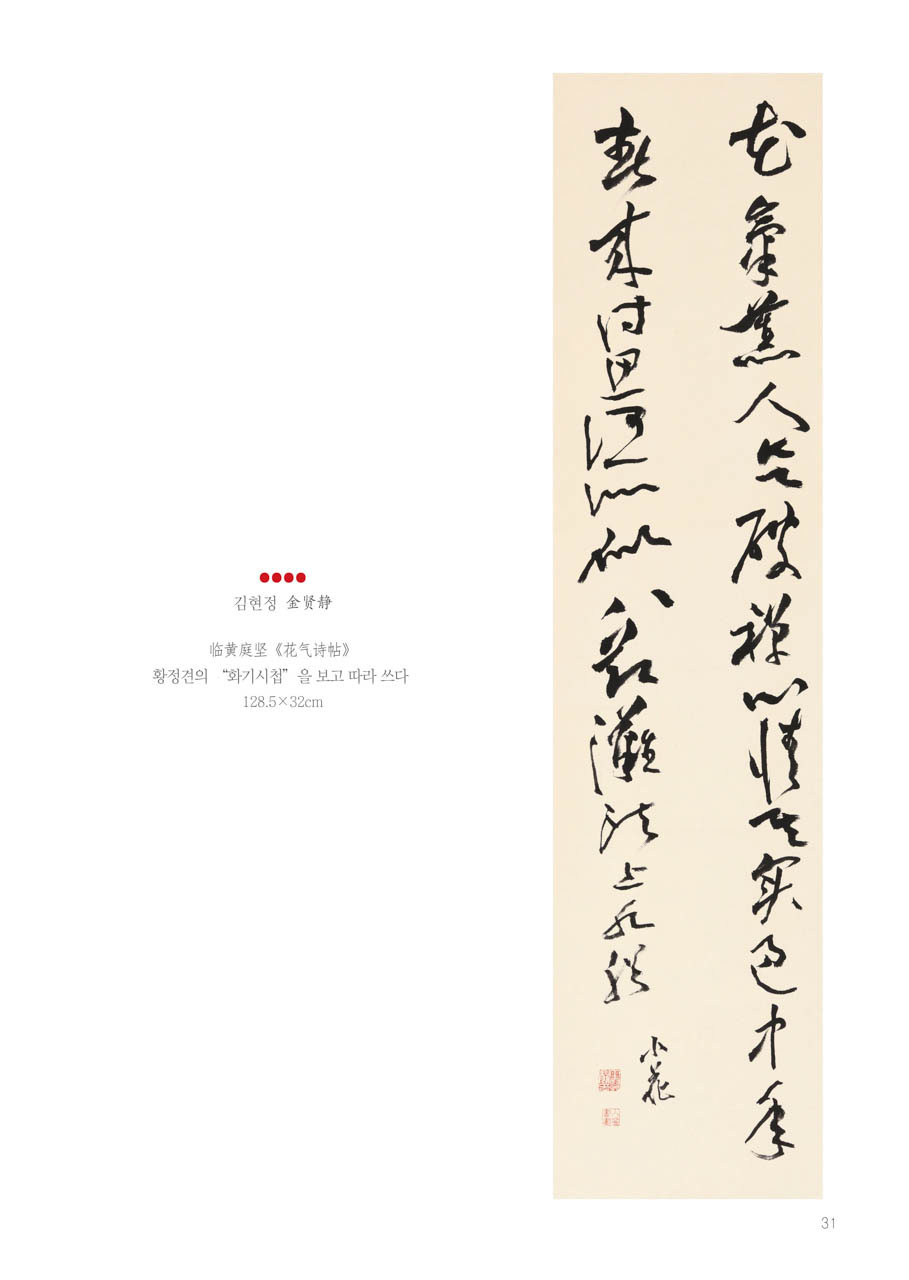 김현정 金贤静
临黄庭坚《花气诗帖》
황정견의 “화기시첩” 을 보고 따라 쓰다
128.5×32cm
花氣薰人欲破禪心情其實過中年
春來詩思何所似八節灘頭上水船
小花
31